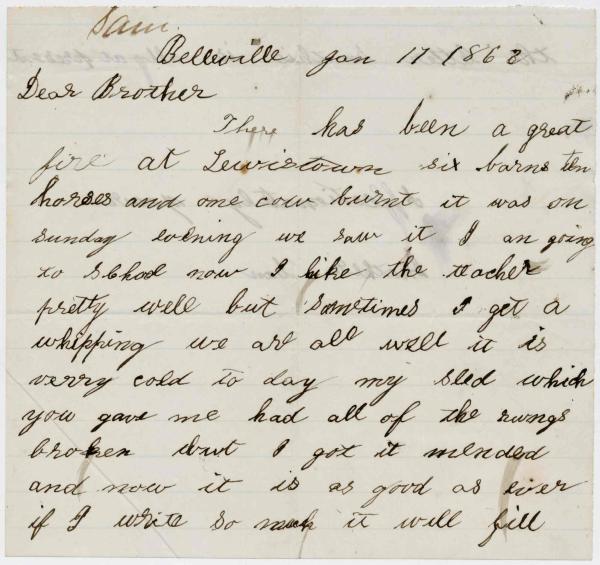 Sam
Belleville Jan 17 1863
Dear Brother
There has been a great
fire at Lewistown six barns ten
horses and one cow burnt it was on
sunday evening we saw it I an going
to school now I like the teacher
pretty well but sometimes I get a
whipping we are all well it is
verry cold to day my sled which
you gave me had all of the rungs
broken but I got it mended
and now it is as good as ever
if I write so much it will fill